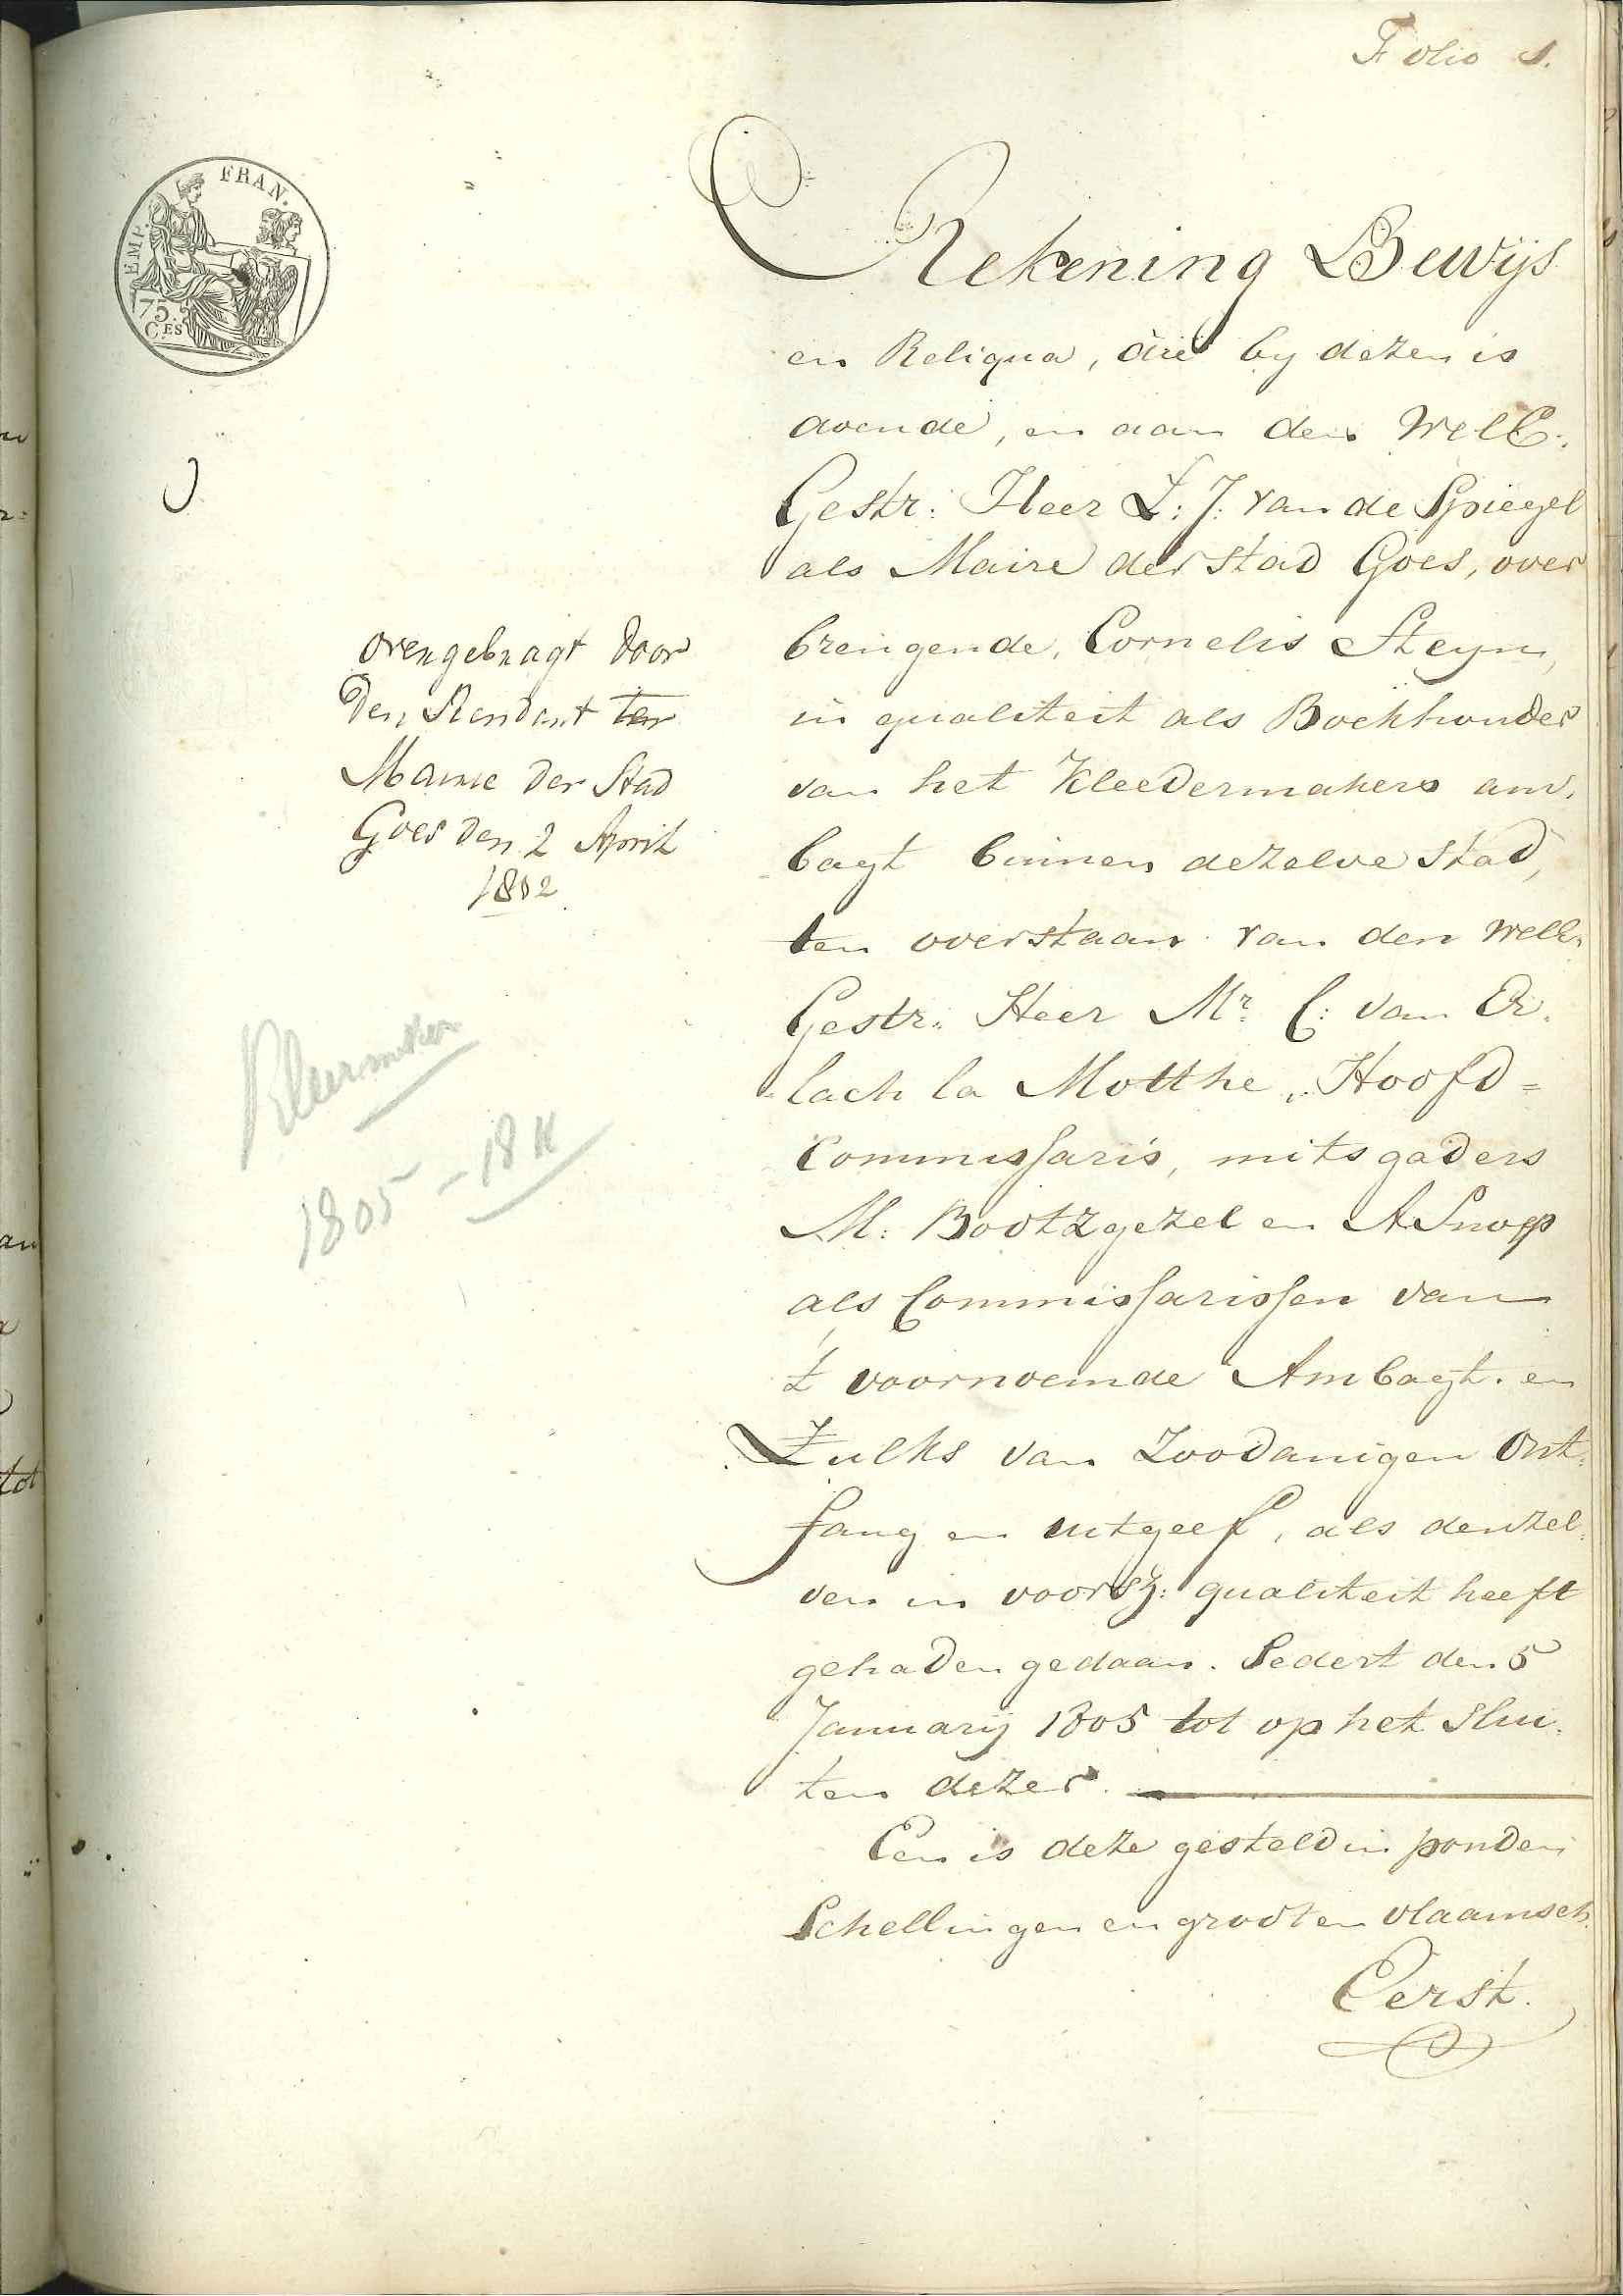 Folio 1.
EMP. FRAN.
75.
C.ES
Rekening Bewijs
en Reliqua, die by dezen is
doende, en aan den WelE:
Gestr: Heer L: J: van de Spiegel
als Maire der stad Goes, over
brengende, Cornelis Steyn,
in qualiteit als Boekhouder
van het Kleedermakers am,
bagt binnen dezelve stad,
ten overstaan van den WelE:
Gestr: Heer Mr. C: van Er,
lach la Motthe, Hoofd=
commissaris, mitsgaders
M: Bootzgezel en A Snoep
als Commissarissen van
't voornoemde Ambagt. en
Zulks van zoodanigen Ont,
fang en uitgeef, als denzel,
ven in voorsz: qualiteit heeft
gehad en gedaan. Sedert den 5
Januarij 1805 tot op het slui,
ten dezer.
En is deze gesteld in ponden
Schellingen en grooten vlaamsch.
Eerst.
overgebragt door
den Rendant ter
Mairie der Stad
Goes den 2 April
1812.
Kleermaker
1805 - 1811